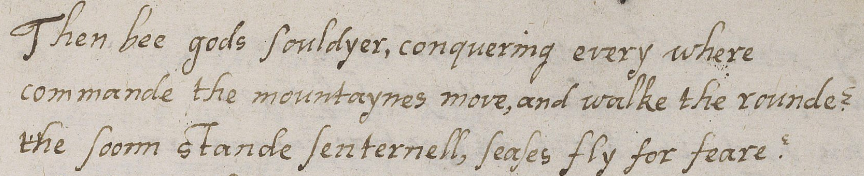 Then bee gods souldyer, conquering every where
commande the mountaynes move, and walke the rounde?
the soonn stande senternell, seases fly for feare?